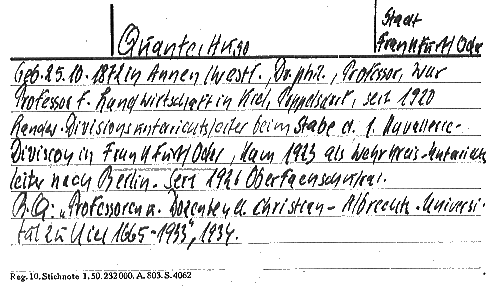 Stadt
Quante Hugo Frankfurt/Oder
Geb. 25.10.1872 in Annen (Westf., Dr. phil., Professor, war
Professor f. Landwirtschaft in Kiel, Poppelsdorf, seit 1920
Divisionsunterrichtsleiter beim Stabe d. 1. Kavallerie-
Division in Frankfurt/Oder, kam 1923 als Wehrkreis-Unterrichts
leiter nach Berlin. Seit 1926
B.Q.: „Professoren u. Dozenten d. Christian-Albrechts-Universi-
tät zu Kiel 1665-1933", 1934.
Reg. 10. Stichnote 1. 50. 232000. A. 803. S. 4062